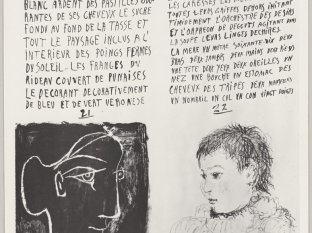 BLANC ARDENT DES PASTILLES
RANTES DE SES CHEVEUX LE SUCRE
FONDU AU FOND DE LA TASSE ET
TOUT LE PAYSAGE INCLUS A L'
INTERIEUR DES POINGS FERMES
DU SOLEIL... LES FRANGES DU
RIDEAU COUVERT DE PUNAISES
LE DECORANT DECORATIVEMENT
DE BLEU ET DE VERT VERONESE
21
LES CARESSES
TOUTES LEURS GRIFFES DEHORS
TIMIDEMENT L'ORCHESTRE DES DESIRS
ET L'
LA SOUPE LEURS LINGES DECHIRES
LA MERE UN METRE SOIXANTE DIX DEUX
BRAS DEUX JAMBES DEUX MAINS DEUX PIEDS
UNE TETE DEUX YEUX DEUX OREILLES UN
NEZ UNE BOUCHE UN ESTOMAC DES
CHEVEUX DES TRIPES DEUX MAMELLES
UN NOMBRIL UN CUL UN CON VINGT DOIGTS
22